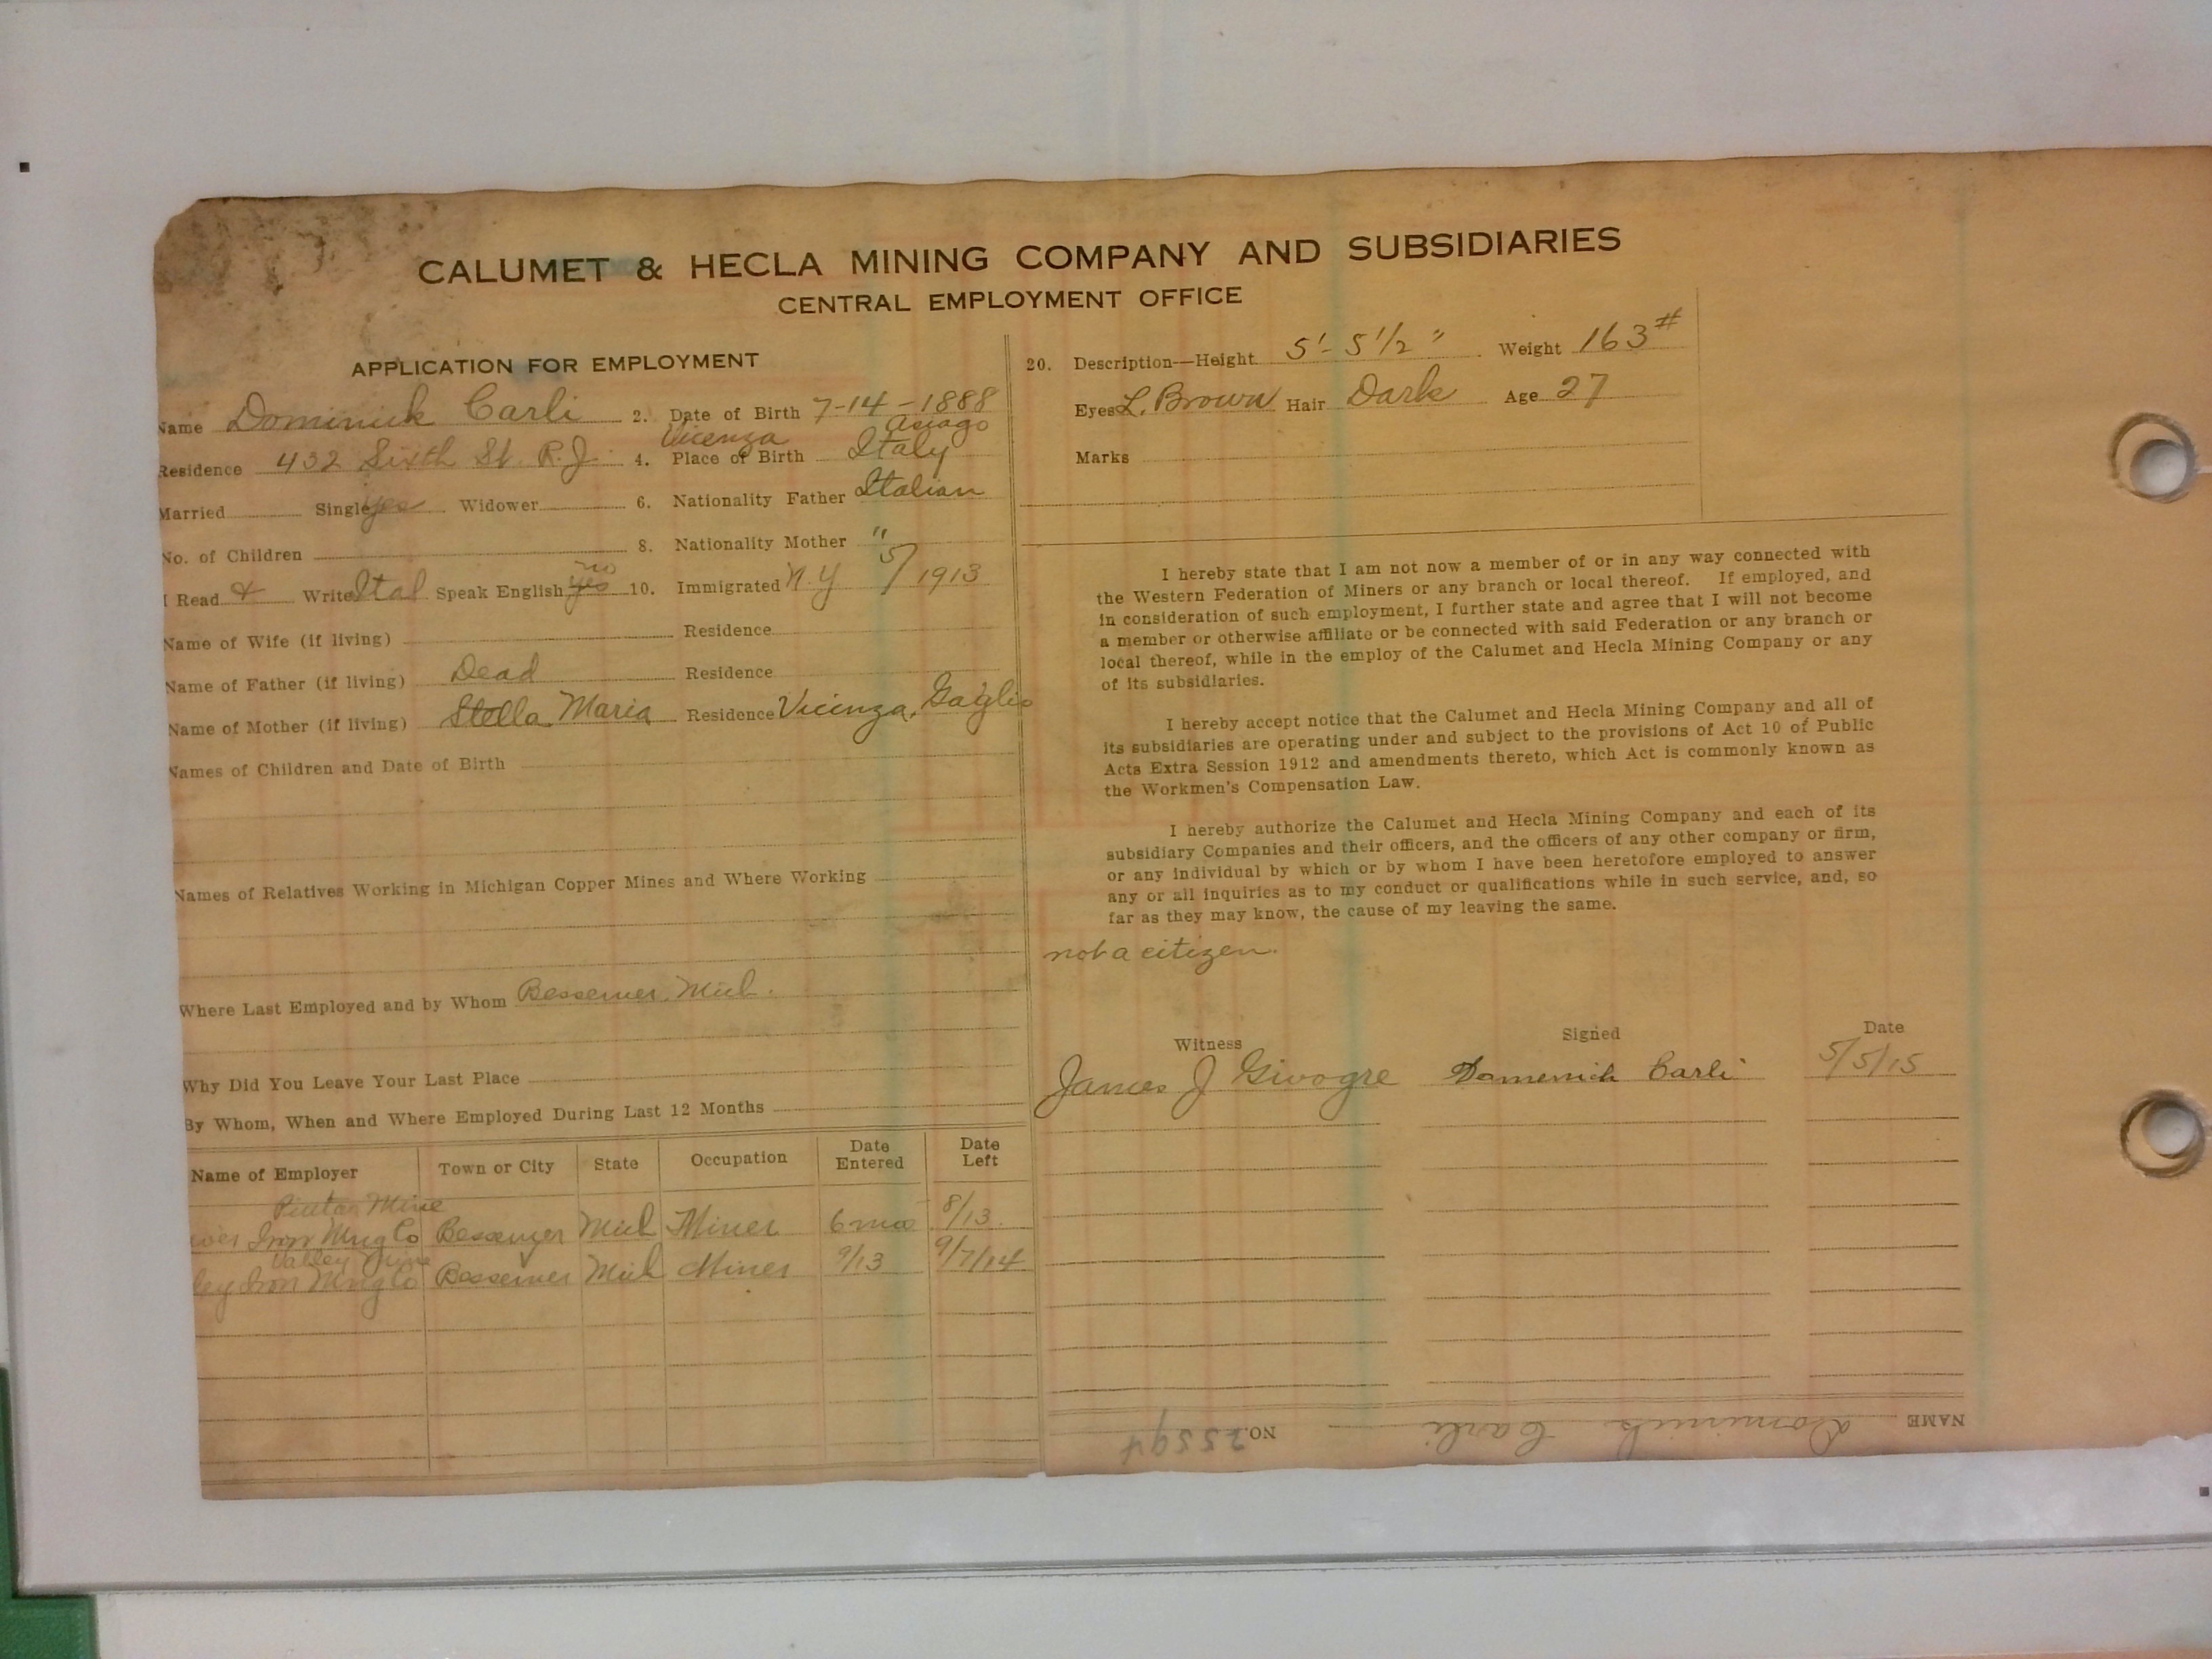 CALUMET & HECLA MINING COMPANY AND SUBSIDIARIES
CENTRAL EMPLOYMENT OFFICE
APPLICATION FOR EMPLOYMENT
Name Dominick Carli 2. Date of Birth 7-14-1888
Vicenza Asiago
Residence 432 Sixth St. R.J. 4. Place of Birth Italy
Married Single yes Widower 6. Nationality Father Italian
No. of Children 8. Nationality Mother "
no
I Read & Write Ital Speak English yes 10. Immigrated N.Y 5/1913
Name of Wife (if living) Residence
Name of Father (if living) Dead Residence
Name of Mother (if living) Stella Maria Residence Vicinza,
Names of Children and Date of Birth
Names of Relatives Working in Michigan Copper Mines and Where Working
Where Last Employed and by Whom Bessemer, Mich.
Why Did You Leave Your Last Place
By Whom, When and Where Employed During Last 12 Months
Name of Employer Town or City State Occupation Date Entered Date Left
Mine
Iron Mng Co Bessemer Mich Miner 6 mos 8/13
Valley Mine
Iron Mng Co Bessemer Mich Miner 9/13 9/7/14
20. Description—Height 5'-5 1/2" Weight 163#
Eyes L. Brown Hair Dark Age 27
Marks
I hereby state that I am not now a member of or in any way connected with
the Western Federation of Miners or any branch or local thereof. If employed, and
in consideration of such employment, I further state and agree that I will not become
a member or otherwise affiliate or be connected with said Federation or any branch or
local thereof, while in the employ of the Calumet and Hecla Mining Company or any
of its subsidiaries.
I hereby accept notice that the Calumet and Hecla Mining Company and all of
its subsidiaries are operating under and subject to the provisions of Act 10 of Public
Acts Extra Session 1912 and amendments thereto, which Act is commonly known as
the Workmen's Compensation Law.
I hereby authorize the Calumet and Hecla Mining Company and each of its
subsidiary Companies and their officers, and the officers of any other company or firm,
or any individual by which or by whom I have been heretofore employed to answer
any or all inquiries as to my conduct or qualifications while in such service, and, so
far as they may know, the cause of my leaving the same.
not a citizen.
Witness Signed Date
James J Givogre Domenick Carli 5/5/15
NAME Dominick Carli NO. 25594